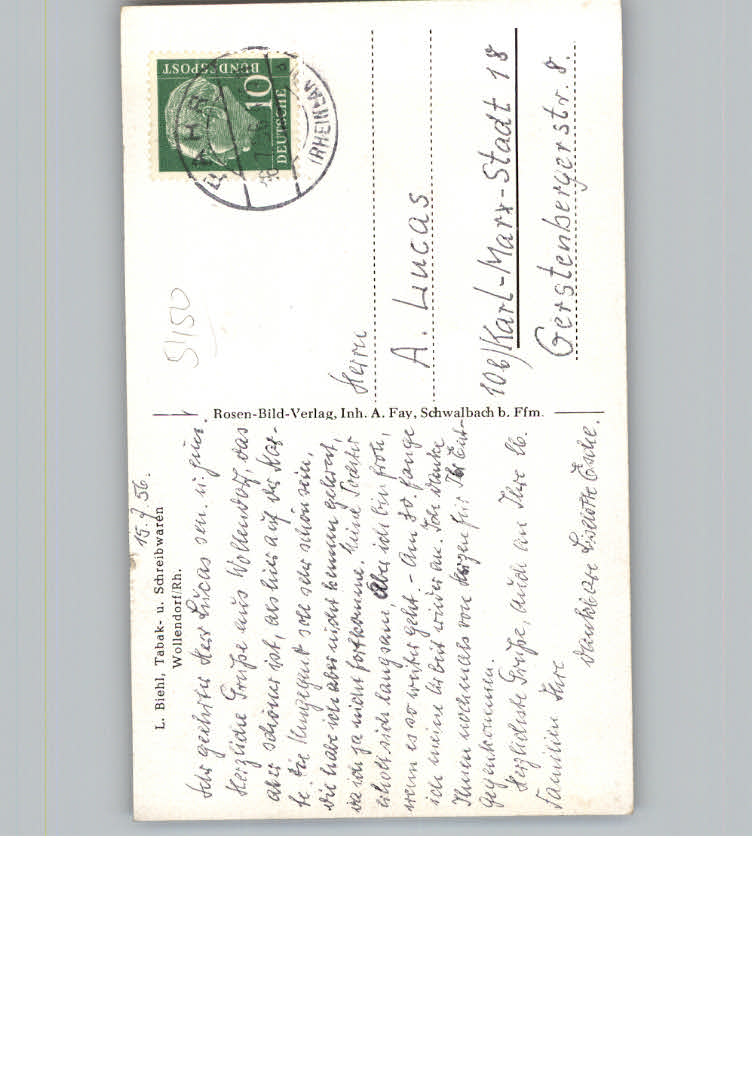 15.7.56.
L. Biehl, Tabak- u. Schreibwaren
Wollendorf/Rh.
Sehr geehrter Herr Lucas sen. u. jun.
Herzliche Grüße aus Wollendorf, das
aber schöner ist, als hier auf der Kar-
te. Die Umgegend soll sehr schön sein,
die habe ich aber nicht kennen gelernt,
da ich ja nicht fortkomme. Meine Tochter
erholt sich langsam, aber ich bin froh,
wenn es so weiter geht. - Am 30. fange
ich meine Arbeit wieder an. Ich danke
Ihnen nochmals von Herzen für Ihr Ent-
gegenkommen.
Herzlichste Grüße, auch an Ihre lb.
Familien Ihre
dankbare Liselotte
Rosen-Bild-Verlag, Inh. A. Fay, Schwalbach b. Ffm.
DEUTSCHE
BUNDESPOST
10
FAHR
(RHEINLAND)
5/150
Herrn
A. Lucas
10b) Karl-Marx-Stadt 18
Gerstenbergerstr. 8.